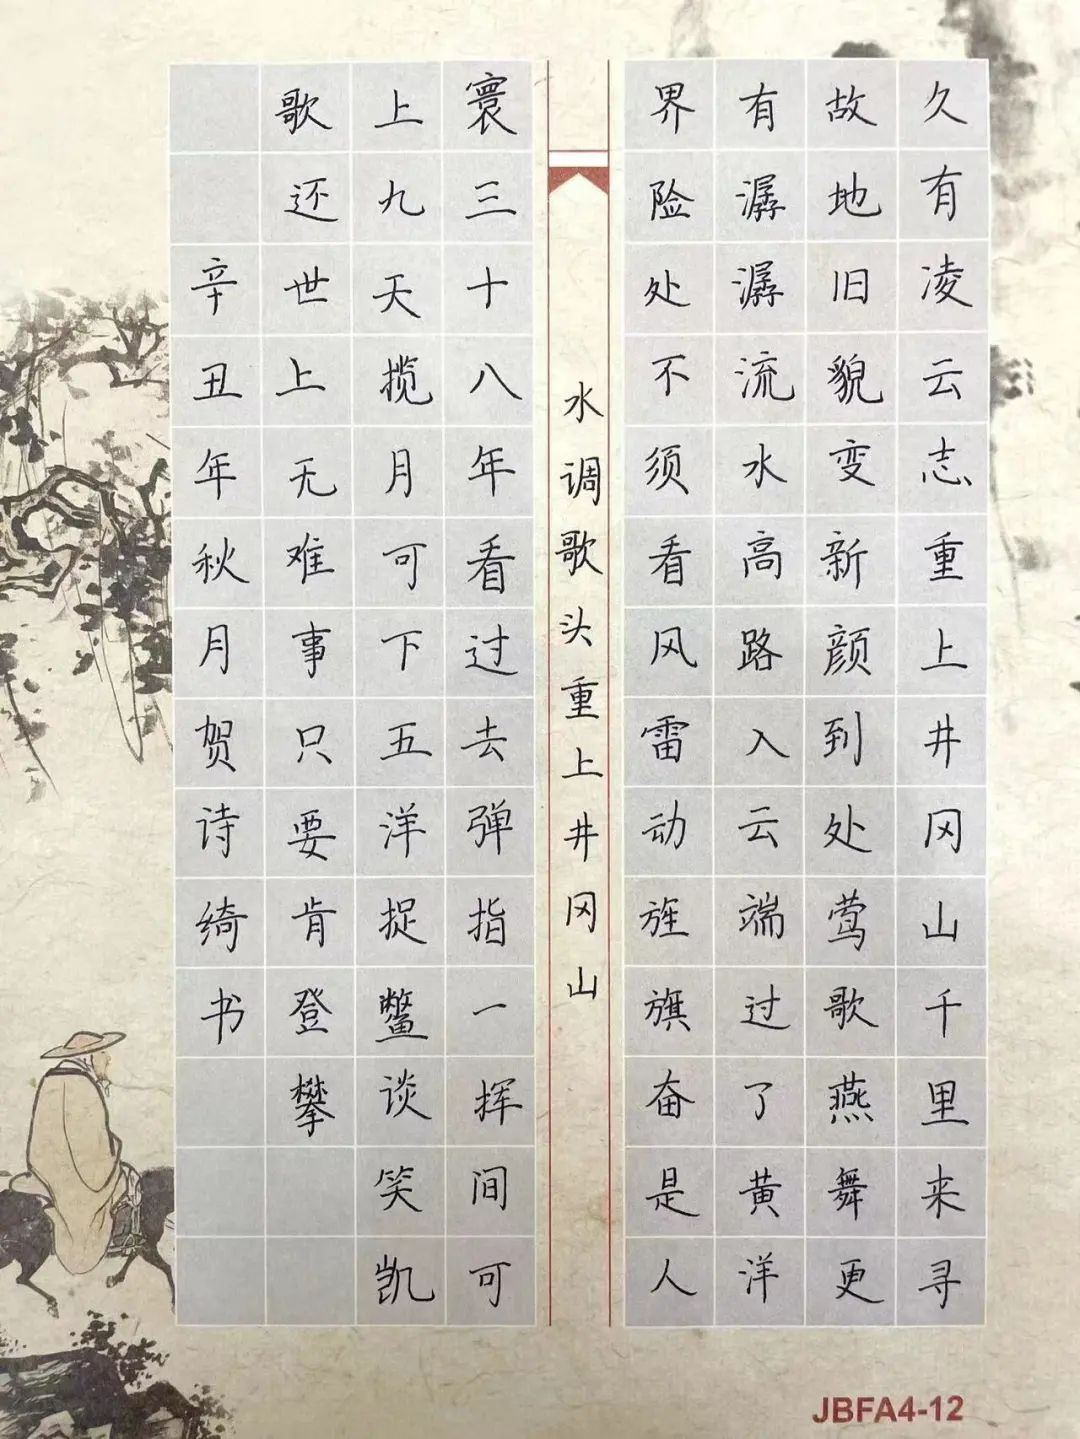 久有凌云志重上井冈山千里来寻
故地旧貌变新颜到处莺歌燕舞更
有潺潺流水高路入云端过了黄洋
界险处不须看风雷动旌旗奋是人
水调歌头重上井冈山
寰三十八年看过去弹指一挥间可
上九天揽月可下五洋捉鳖谈笑凯
歌还世上无难事只要肯登攀
辛丑年秋月贺诗绮书
JBFA4-12